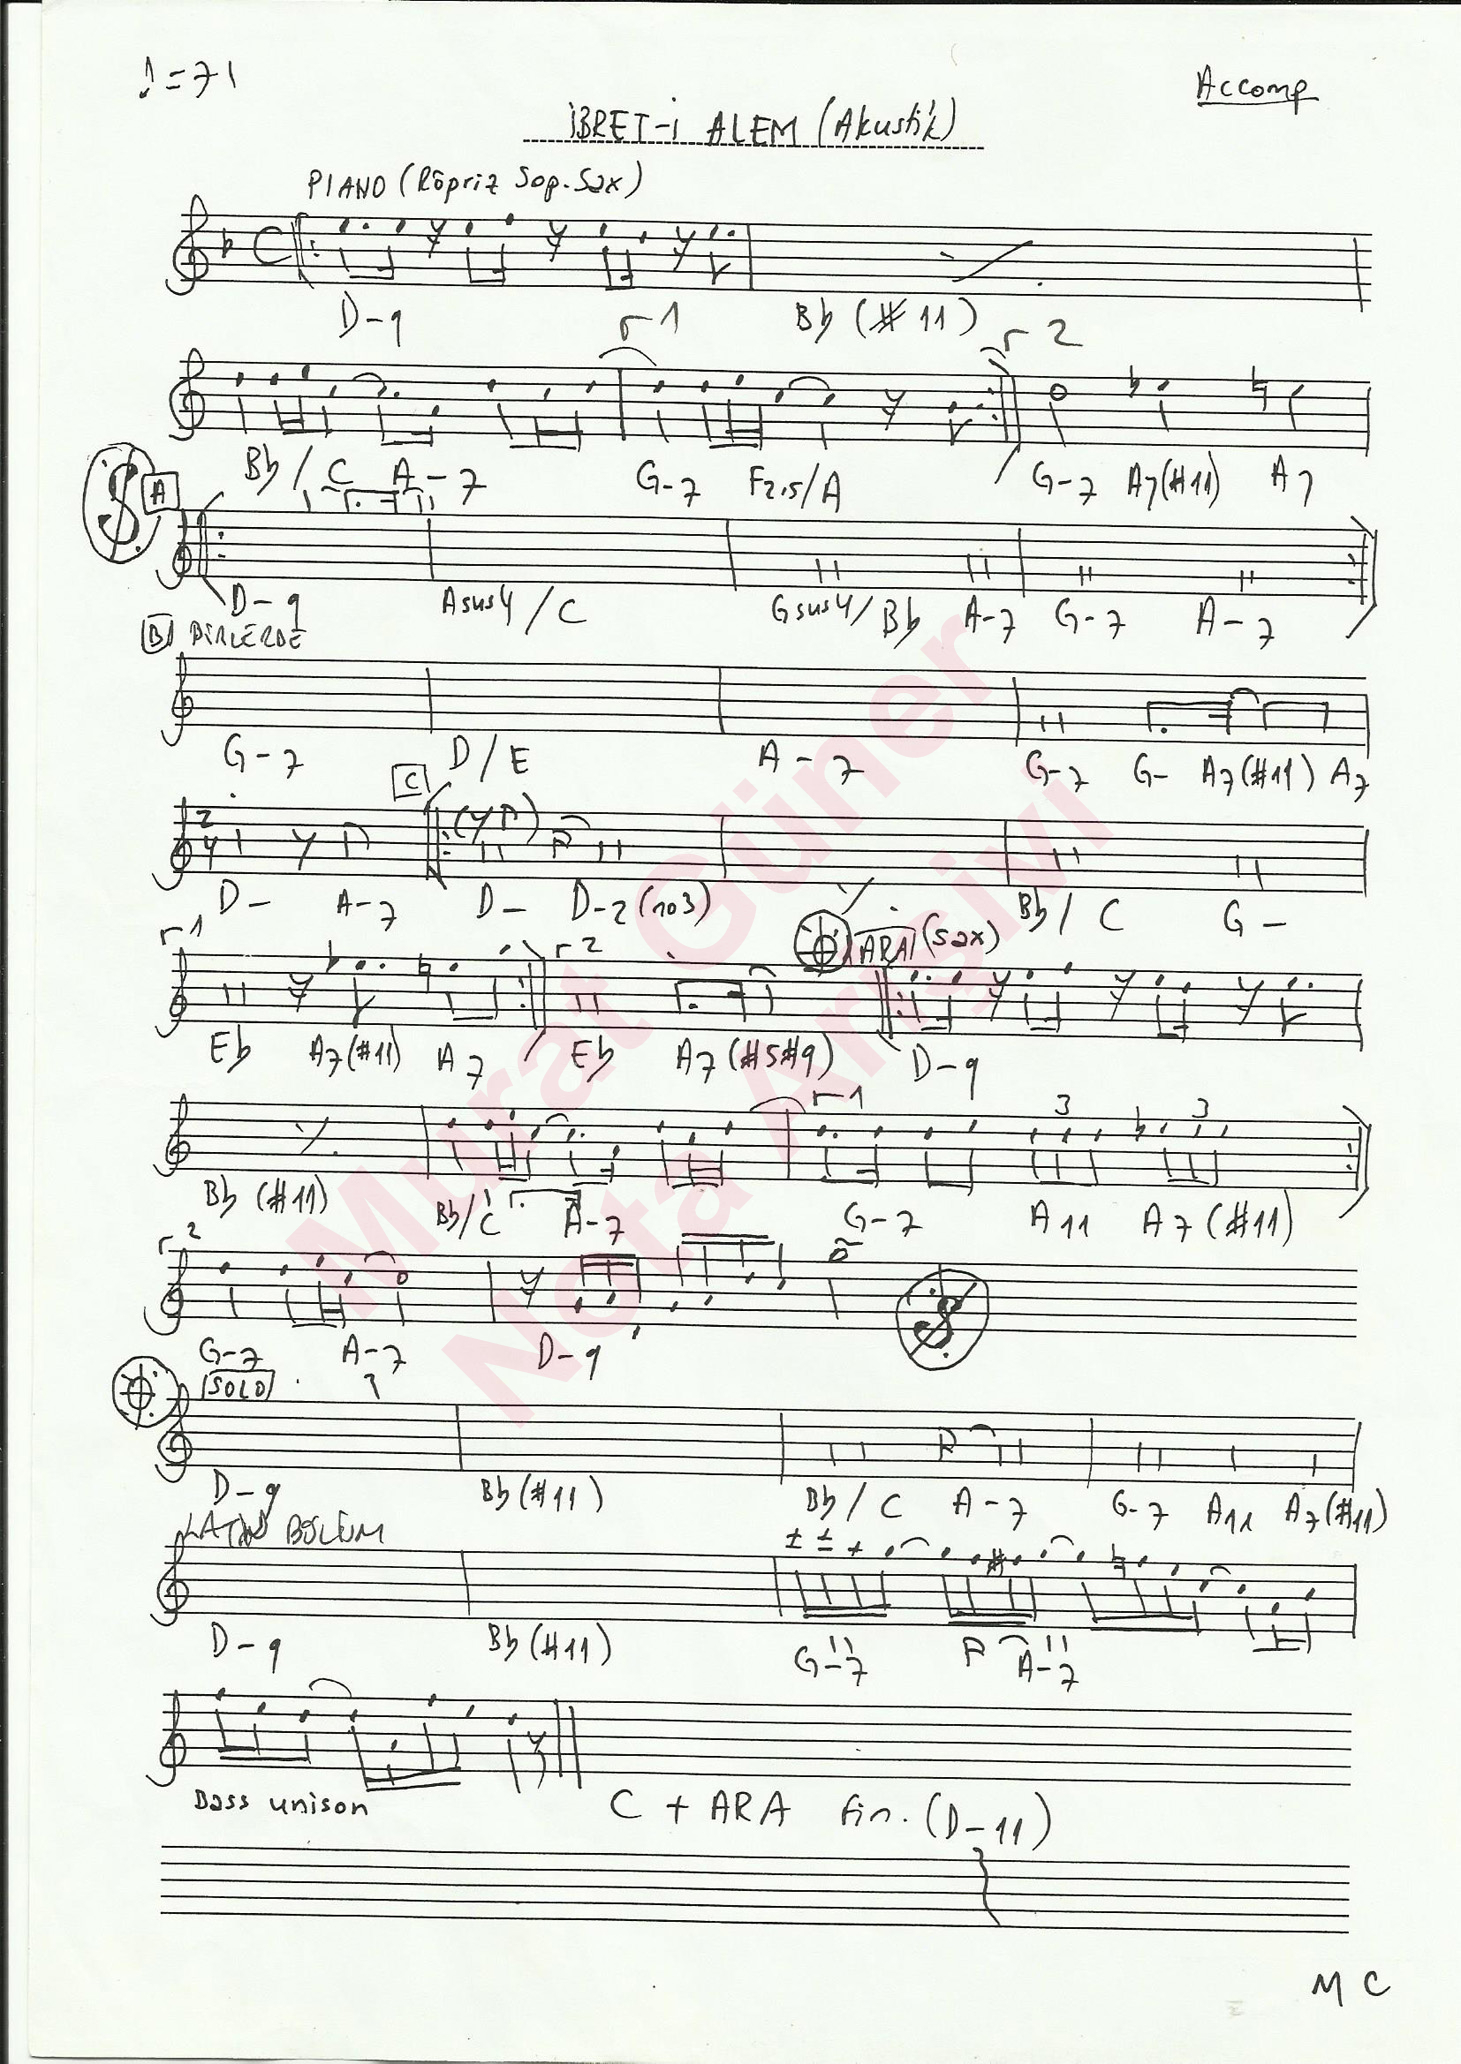 ♩=71
Accomp
İBRET-i ALEM (Akustik)
PIANO (Röpriz Sop. Sax)
D-9 Bb (#11)
r1 r2
Bb/C A-7 G-7 F2.5/A G-7 A7(#11) A7
A
D-9 Asus4/C Gsus4/Bb A-7 G-7 A-7
B BİRLERDE
G-7 D/E A-7 G-7 G- A7(#11) A7
C
2/4
D- A-7 D- D-2(no3) Bb/C G-
r1 r2 ARA (Sax)
Eb A7(#11) A7 Eb A7(#5#9) D-9
r1 3 3
Bb (#11) Bb/C A-7 G-7 A11 A7(#11)
r2
G-7 A-7 D-9
SOLO
D-9 Bb(#11) Bb/C A-7 G-7 A11 A7(#11)
LATİN BÖLÜM
D-9 Bb(#11) G-7 A-7
Bass unison C + ARA fin. (D-11)
M C
Murat Güner
Nota Arşivi